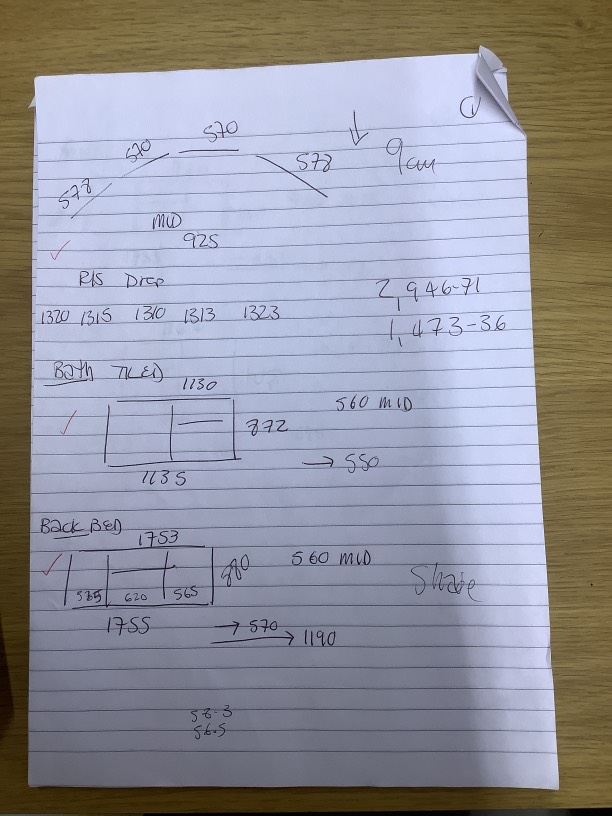 570
570
578
578
9cm
MID
925
RIS Drop
1320 1315 1310 1313 1323
2,946-71
1,473-36
Bath TILED
1130
560 MID
872
→ 550
1135
Back BED
1753
880
560 MID
585 620 565
1755
→ 570
→ 1190
58.3
56.5